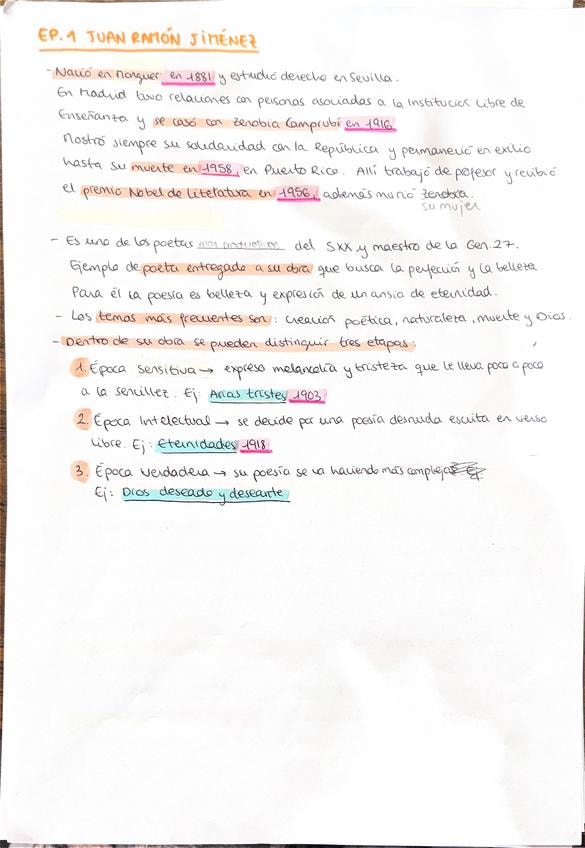 EP.1 JUAN RAMÓN JIMÉNEZ
- Nació en Monguer en 1881 y estudió derecho en Sevilla.
En Madrid tuvo relaciones con personas asociadas a la Institucion Libre de
Enseñanza y se casó con Zenobia Camprubí en 1916
Mostró siempre su solidaridad con la República y permaneció en exilio
hasta su muerte en 1958, en Puerto Rico. Allí trabajó de profesor y recibió
el premio Nobel de Literatura en 1956, además murió Zenobia.
su mujer
- Es uno de los poetas más productivos del SXX y maestro de la Gen. 27.
Ejemplo de poeta entregado a su obra que busca la perfección y la belleza.
Para él la poesía es belleza y expresión de un ansia de eternidad.
- Los temas más frecuentes son: creación poética, naturaleza, muerte y Dios.
- Dentro de su obra se pueden distinguir tres etapas:
1. Época Sensitiva → expresa melancolía y tristeza que le lleva poco a poco
a la sencillez. Ej: Arias tristes 1903
2. Época Intelectual → se decide por una poesía desnuda escrita en verso
libre. Ej: Eternidades 1918
3. Época verdadera → su poesía se va haciendo más compleja
Ej: Dios deseado y deseante